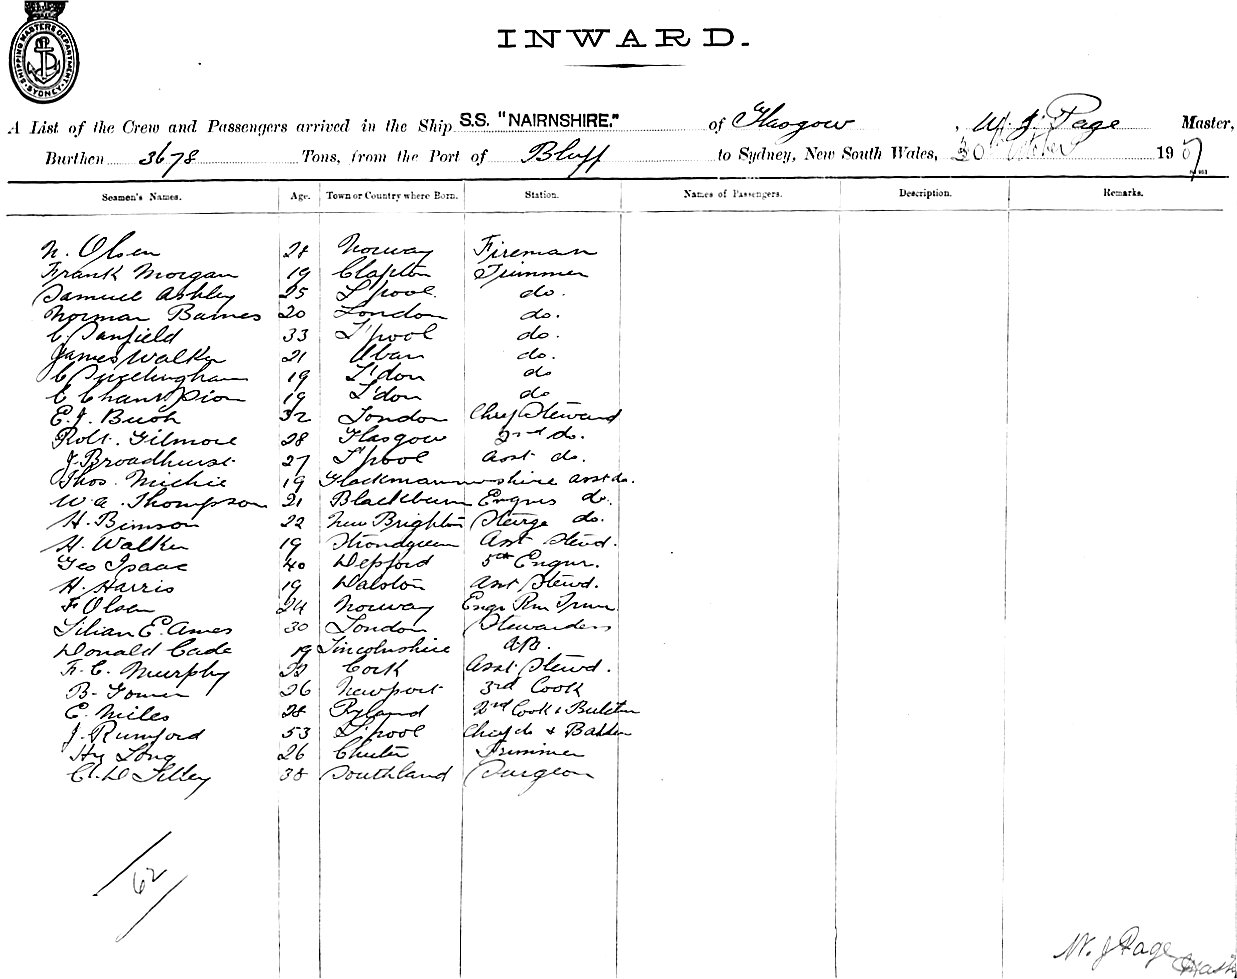 SHIPPING MASTERS DEPARTMENT SYDNEY
INWARD.
A List of the Crew and Passengers arrived in the Ship S.S. "NAIRNSHIRE." of Glasgow, W. J. Page Master,
Burthen 3678 Tons, from the Port of Bluff to Sydney, New South Wales, 30th October 1907
Seamen's Names. Age. Town or Country where Born. Station. Names of Passengers. Description. Remarks.
N. Olsen 28 Norway Fireman
Frank Morgan 19 Clapton Trimmer
Samuel Ashley 25 L'pool. do.
Norman Barnes 20 London do.
C. Panfield 33 L'pool do.
James Walker 21 do.
C 19 L'don do
C Champion 19 L'don do
E. J. Bush 32 London Chief Steward
Robt. Gilmore 28 Glasgow 2nd do.
J. Broadhurst 27 L'pool Asst do.
Thos. Michie 19 asst do.
W. A. Thompson 21 Blackburn Engrs do.
H. Bimson 22 New Brighton Steerge do.
H. Walker 19 Asst Stewd.
Geo Isaac 40 Depford 5th Engnr.
H. Harris 19 Dalston Asst Stewd.
F Olsen 24 Norway Engr Rm
Lilian E. Ames 30 London Stewardess
Donald Cade 19 Lincolnshire A.B.
F. C. Murphy Cork Asst Stewd.
B. 26 Newport 3rd Cook
E. Miles 28 Ryland 2nd Cook & Butcher
J. Rumford 53 L'pool Chief do & Baker
Hy Long 26 Chester Trimmer
Tilley 38 Southland Surgeon
62
W. J. Page
Master